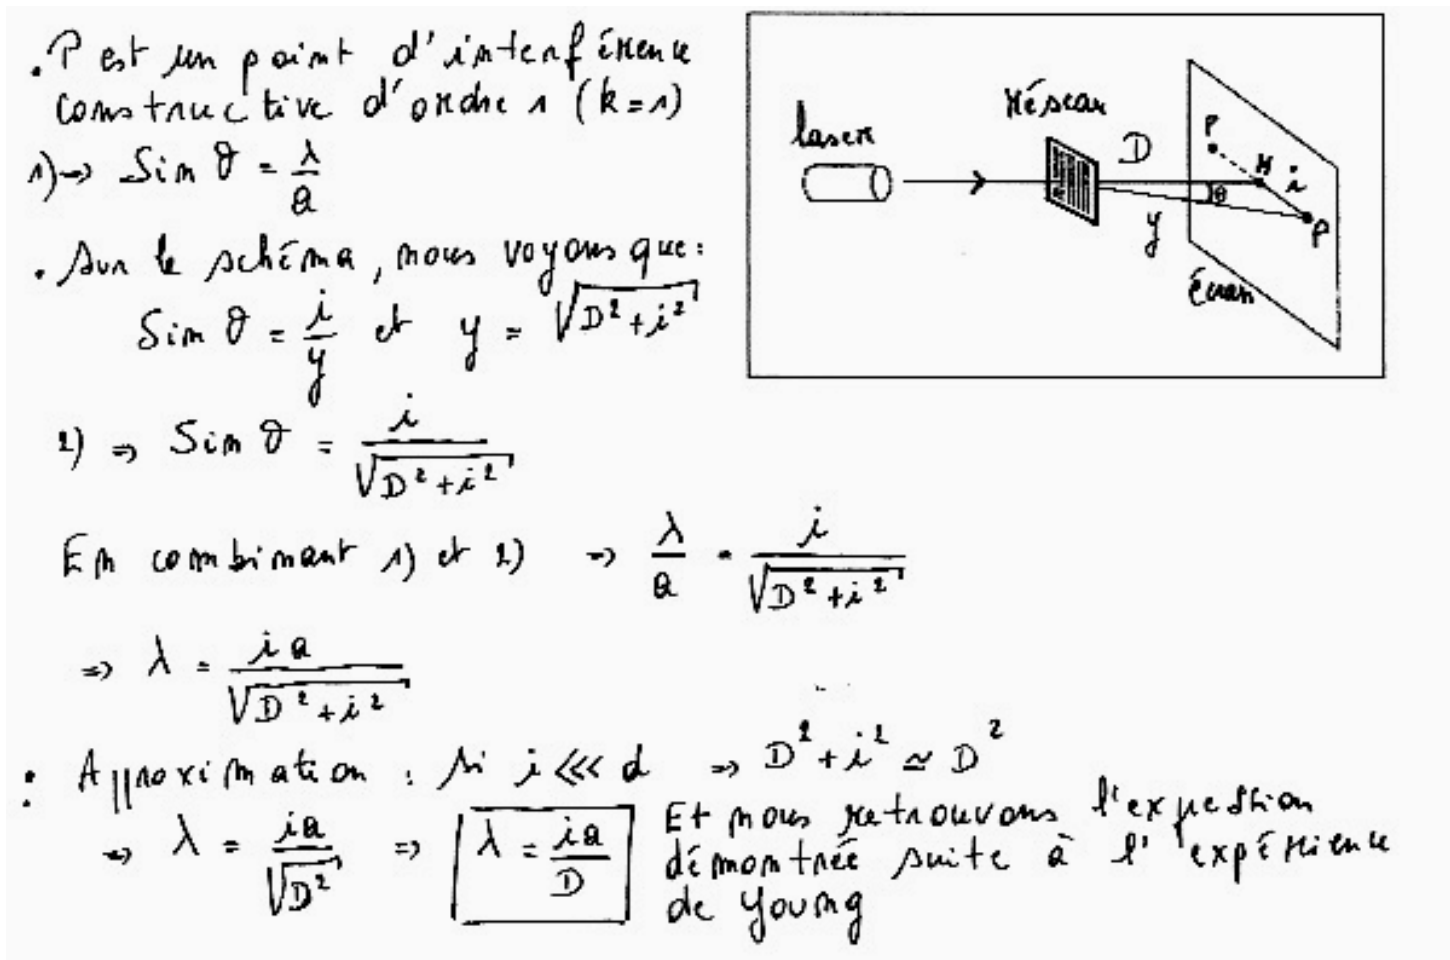 . P est un point d'interférence
constructive d'ordre 1 (k=1)
1)→ Sin θ = λ/a
. Sur le schéma, nous voyons que :
Sin θ = i/y et y = √(D²+i²)
2) ⇒ Sin θ = i/√(D²+i²)
En combinant 1) et 2) ⇒ λ/a = i/√(D²+i²)
⇒ λ = ia/√(D²+i²)
: Approximation : si i <<< d ⇒ D²+i² ≃ D²
⇒ λ = ia/√D² ⇒ λ = ia/D Et nous retrouvons l'expression
démontrée suite à l'expérience
de Young
laser
réseau
D
P
H
i
θ
y
P
Écran